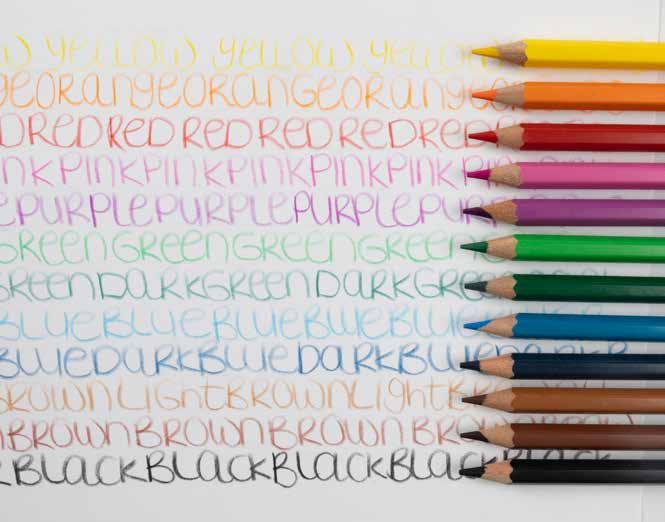 W YELLOW YELLOW YELLOW
geORANgeORANgeORANge
DREDREDREDREDREDRED
INKPINKPINKPINKPINKPINK
EPURPLEPURPLEPURPLEPUR
GREENGREENGREENGREEN
GREENDARKGREENDARKGREE
BLUEBLUEBLUEBLUEBLUEBLUE
BLUEDARKBLUEDARKBLUEDARKB
BROWNLIGHTBROWNLIGHTBROWN
NBROWNBROWNBROWNBROWN
KBLACKBLACKBLACKBLACK